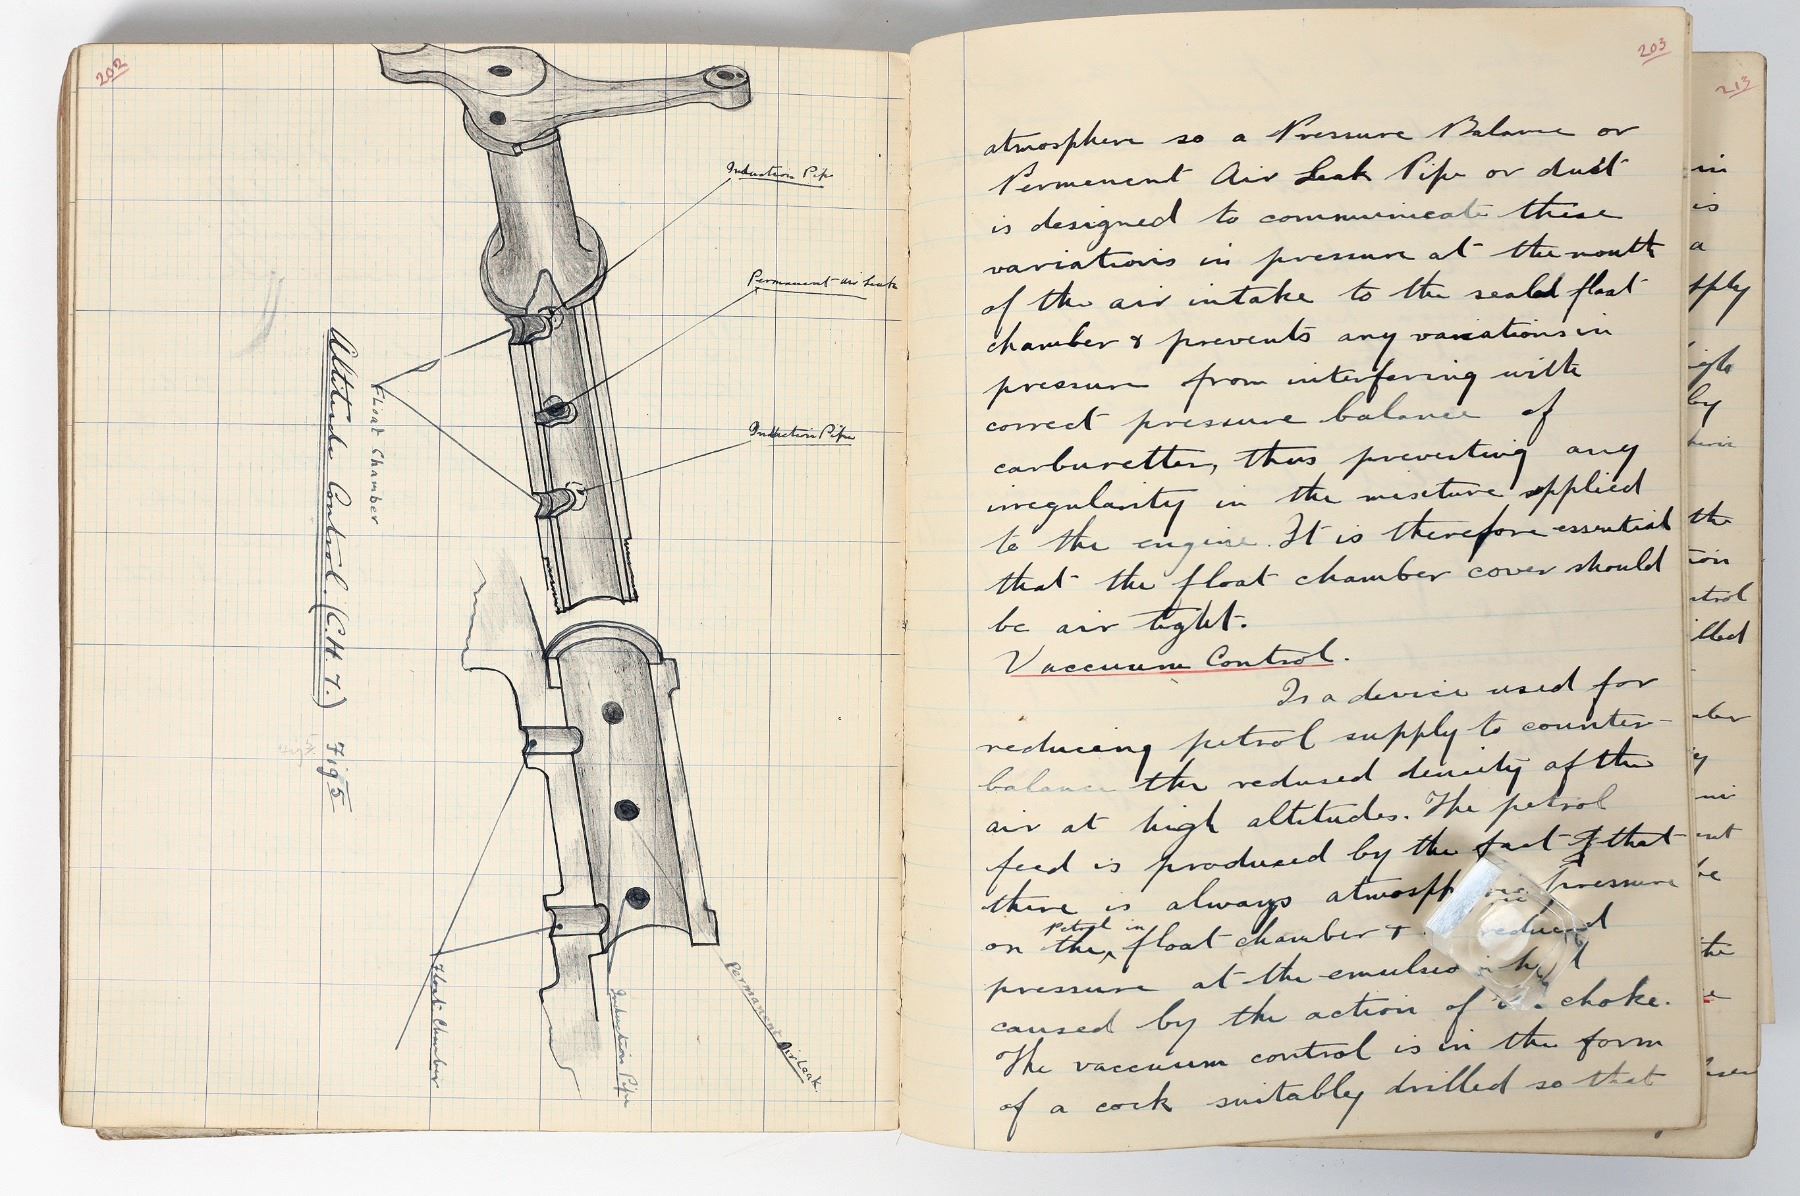 202
Induction Pipe
Permanent Air Leak
Induction Pipe
Float Chamber
Altitude Control. (C.H.T.) Fig 5
Float Chamber
Induction Pipe
Permanent Air Leak
203
atmosphere so a Pressure Balance or
Permenent Air Leak Pipe or duct
is designed to communicate these
variations in pressure at the mouth
of the air intake to the seald float
chamber & prevents any variations in
pressure from interfering with
correct pressure balance of
carburetter, thus preventing any
irregularity in the mixture applied
to the engine. It is therefore essential
that the float chamber cover should
be air tight.
Vaccuum Control.
Is a device used for
reducing petrol supply to counter-
balance the redused density of the
air at high altitudes. The petrol
feed is produced by the fact that
there is always atmospheric Pressure
Petrol in
on the float chamber & reduced
pressure at the
caused by the action of the choke.
The vaccuum control is in the form
of a cock suitably drilled so that
213
in
is
a
pply
by
the
ion
ntrol
illed
mber
the